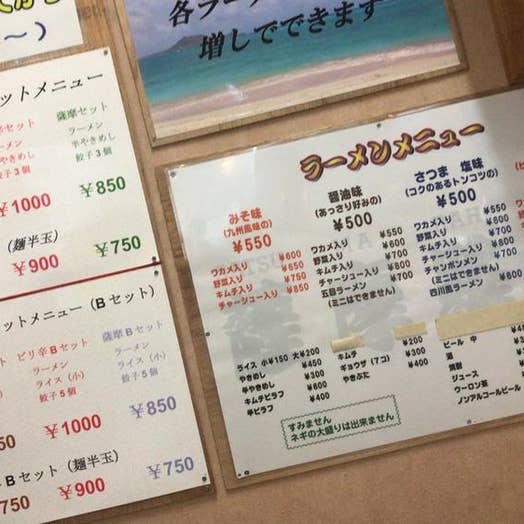 ～）
各ラー
増しでできます
ットメニュー
薩摩セット
ラーメン
ラーメン
半やきめし
半やきめし
餃子3個
餃子3個
¥1000
¥850
（麺半玉）
¥900
¥750
ットメニュー（Bセット）
ット
ピリ辛Bセット
薩摩Bセット
ラーメン
ラーメン
ライス（小）
ライス（小）
餃子5個
餃子5個
¥1000
¥850
Bセット（麺半玉）
750
¥900
¥750
ラーメンメニュー
みそ味
（九州風味の）
¥550
ワカメ入り ¥600
野菜入り ¥650
キムチ入り ¥750
チャーシュー入り ¥850
醤油味
（あっさり好みの）
¥500
ワカメ入り ¥550
野菜入り ¥600
キムチ入り ¥700
チャーシュー入り ¥800
五目ラーメン ¥700
（ミニはできません）
さつま 塩味
（コクのあるトンコツの）
¥500
ワカメ入り ¥550
野菜入り ¥600
キムチ入り ¥700
チャーシュー入り ¥800
チャンポンメン
（ミニはできません）
四川風ラーメン
ライス 小¥150 大¥200
やきめし ¥450
半やきめし ¥300
キムチピラフ ¥600
半ピラフ ¥400
キムチ ¥200
ギョウザ（7コ） ¥300
やきぶた ¥400
ビール 中
酒
焼酎
ジュース
ウーロン茶
ノンアルコールビール
すみません
ネギの大盛りは出来ません